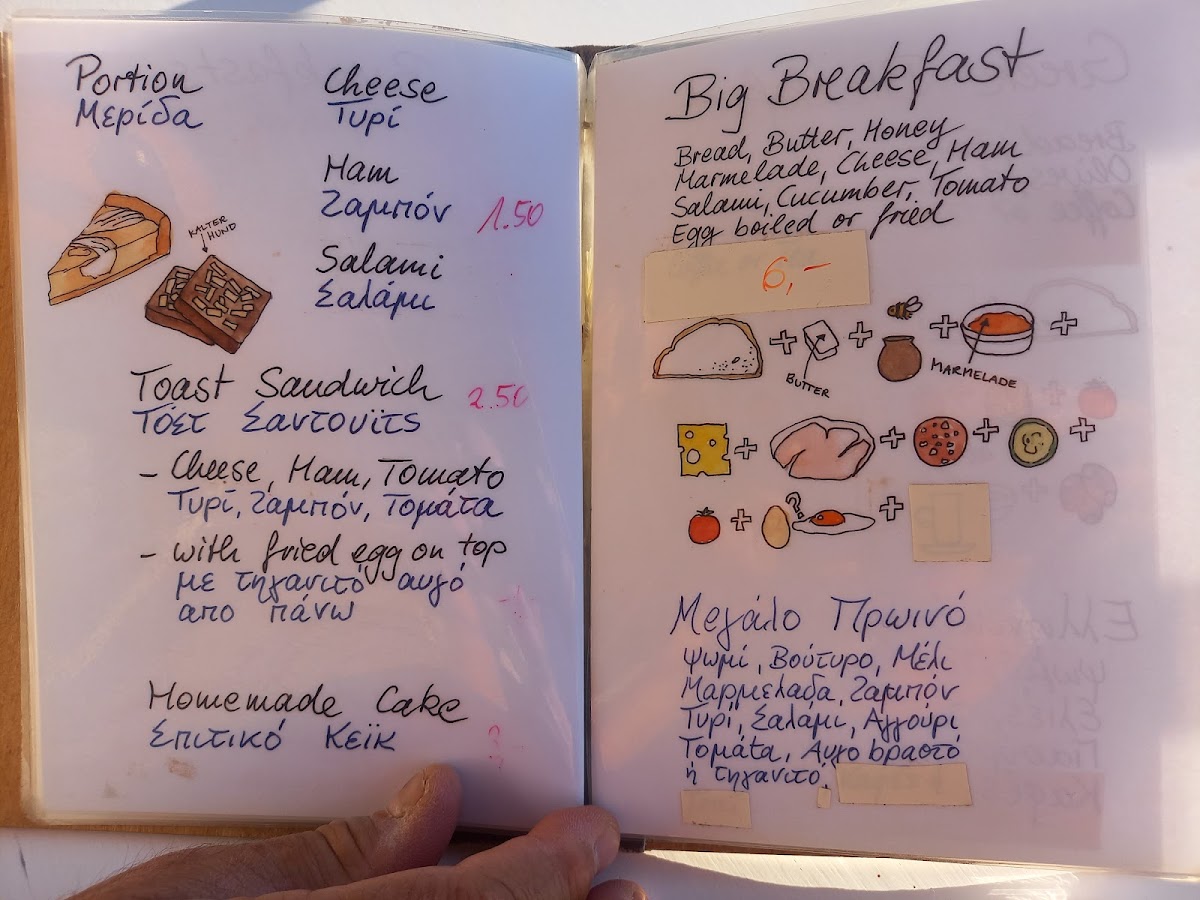 Portion
Μερίδα
Cheese
Τυρί
Ham
Ζαμπόν
1.50
Salami
Σαλάμι
KALTER
HUND
Toast Sandwich
2.50
Τόστ Σαντουϊτς
- Cheese, Ham, Tomato
Τυρί, Ζαμπόν, Τομάτα
- with fried egg on top
με τηγανιτό αυγό
απο πάνω
Homemade Cake
Σπιτικό Κεϊκ
Big Breakfast
Bread, Butter, Honey
Marmelade, Cheese, Ham
Salami, Cucumber, Tomato
Egg boiled or fried
6,-
BUTTER
MARMELADE
Μεγάλο Πρωινό
Ψωμί, Βούτυρο, Μέλι
Μαρμελαδα, Ζαμπόν
Τυρί, Σαλάμι, Αγγούρι
Τομάτα, Αυγο βραστό
ή τηγανιτό